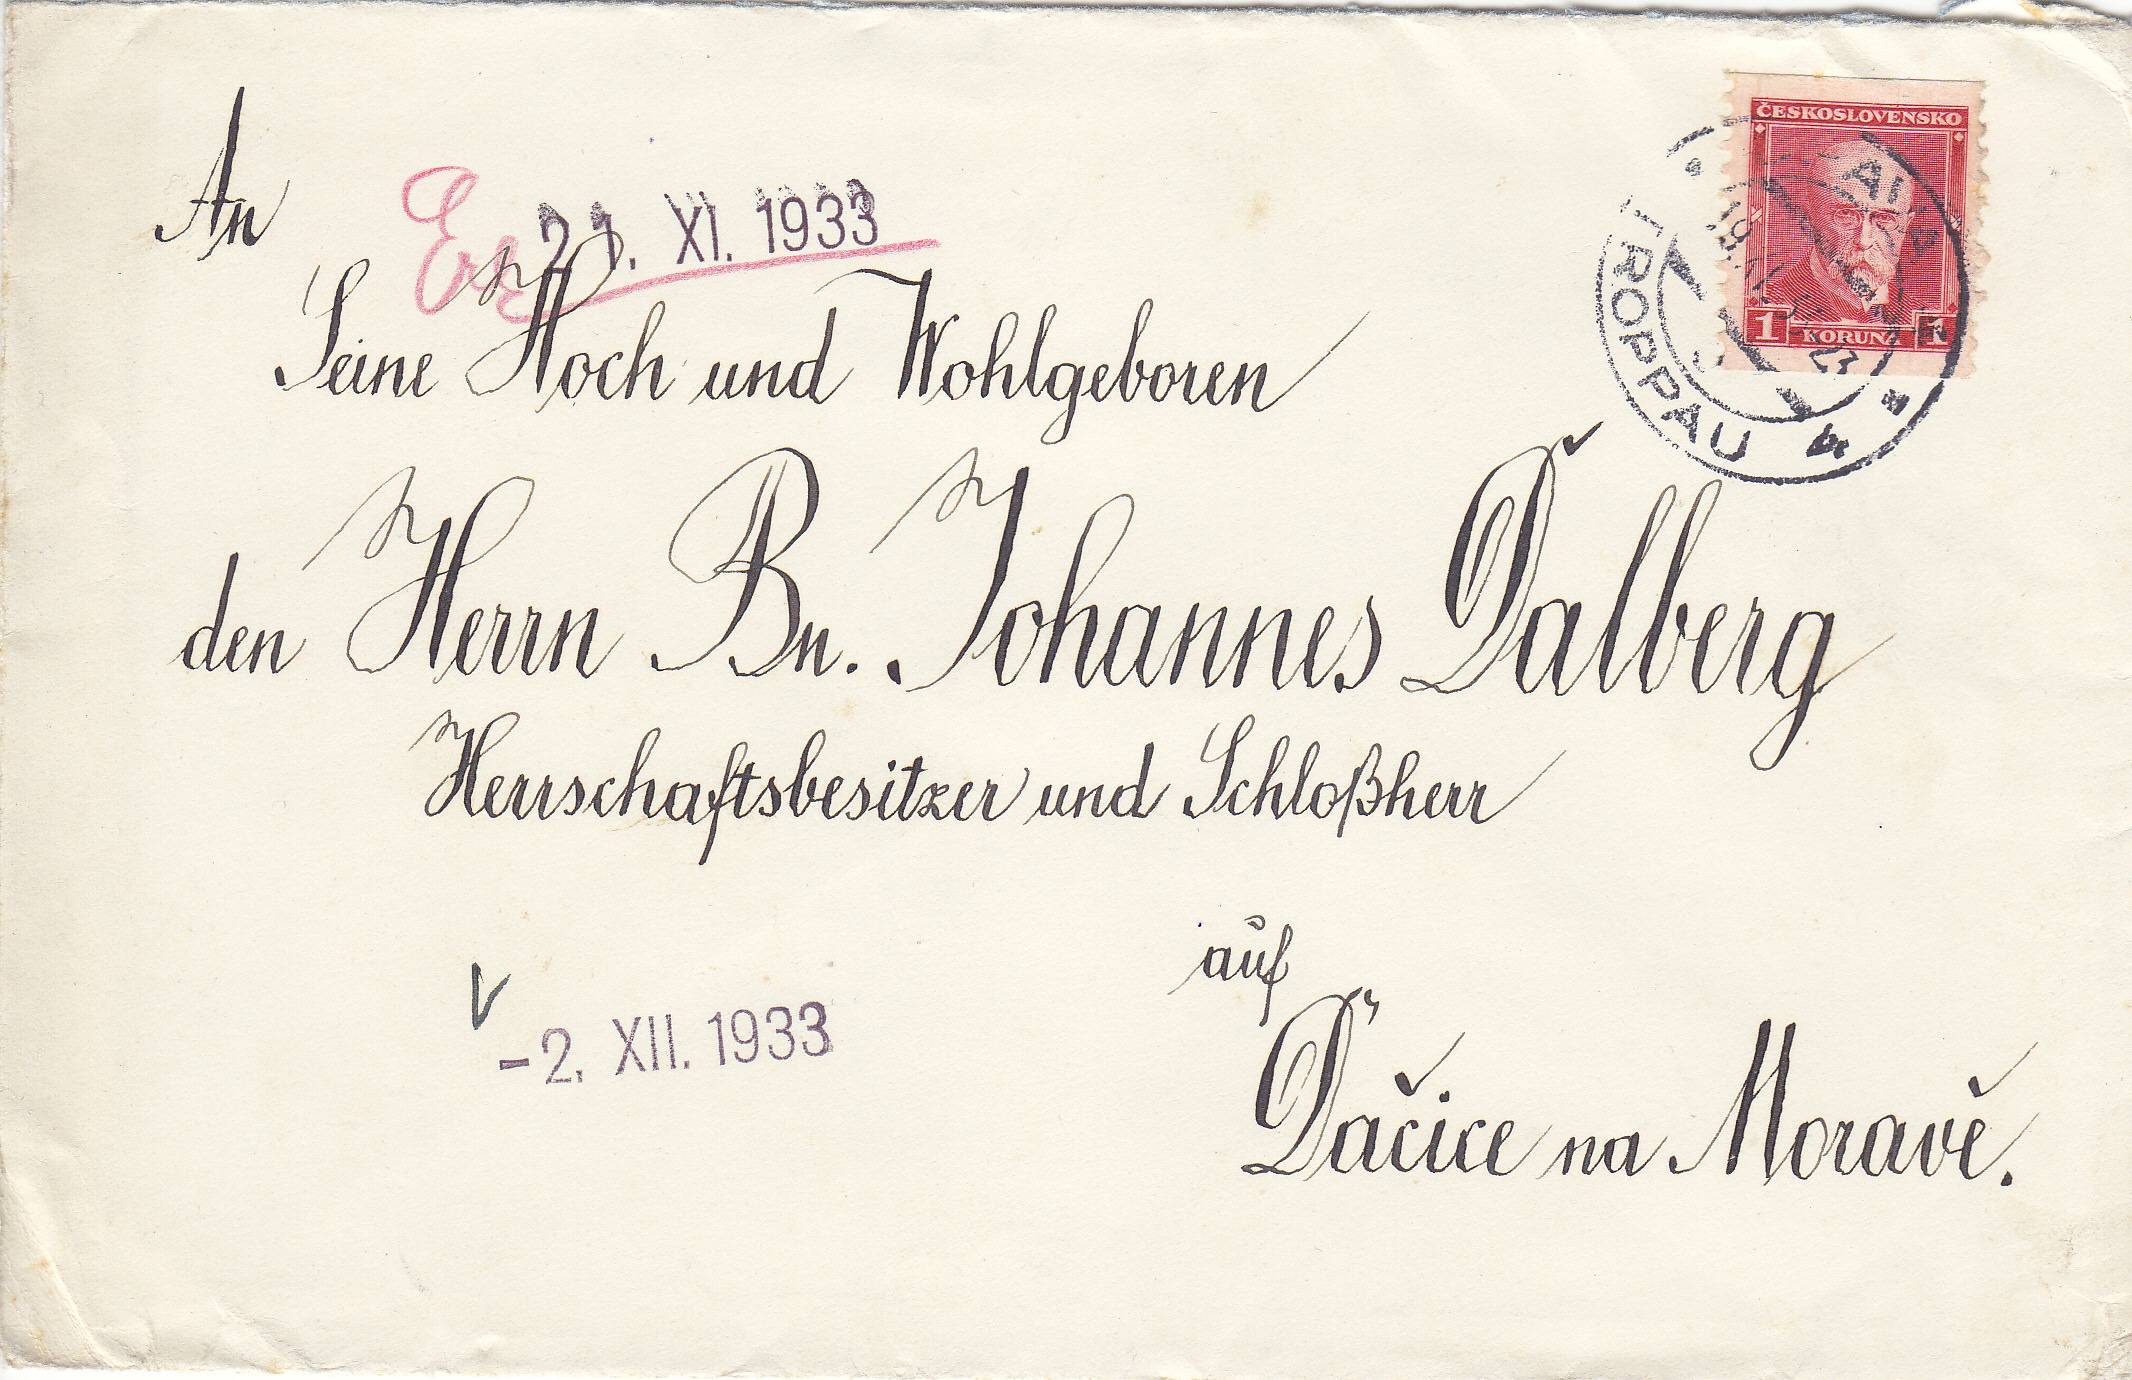 ČESKOSLOVENSKO
1 KORUNA 1
TROPPAU
An
21. XI. 1933
Seine Hoch und Wohlgeboren
den Herrn Bn. Johannes Dalberg
Herrschaftsbesitzer und Schloßherr
auf
-2. XII. 1933
Dačice na Moravě.